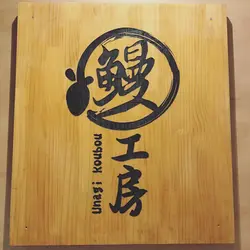 鰻
工房
Unagi Koubou